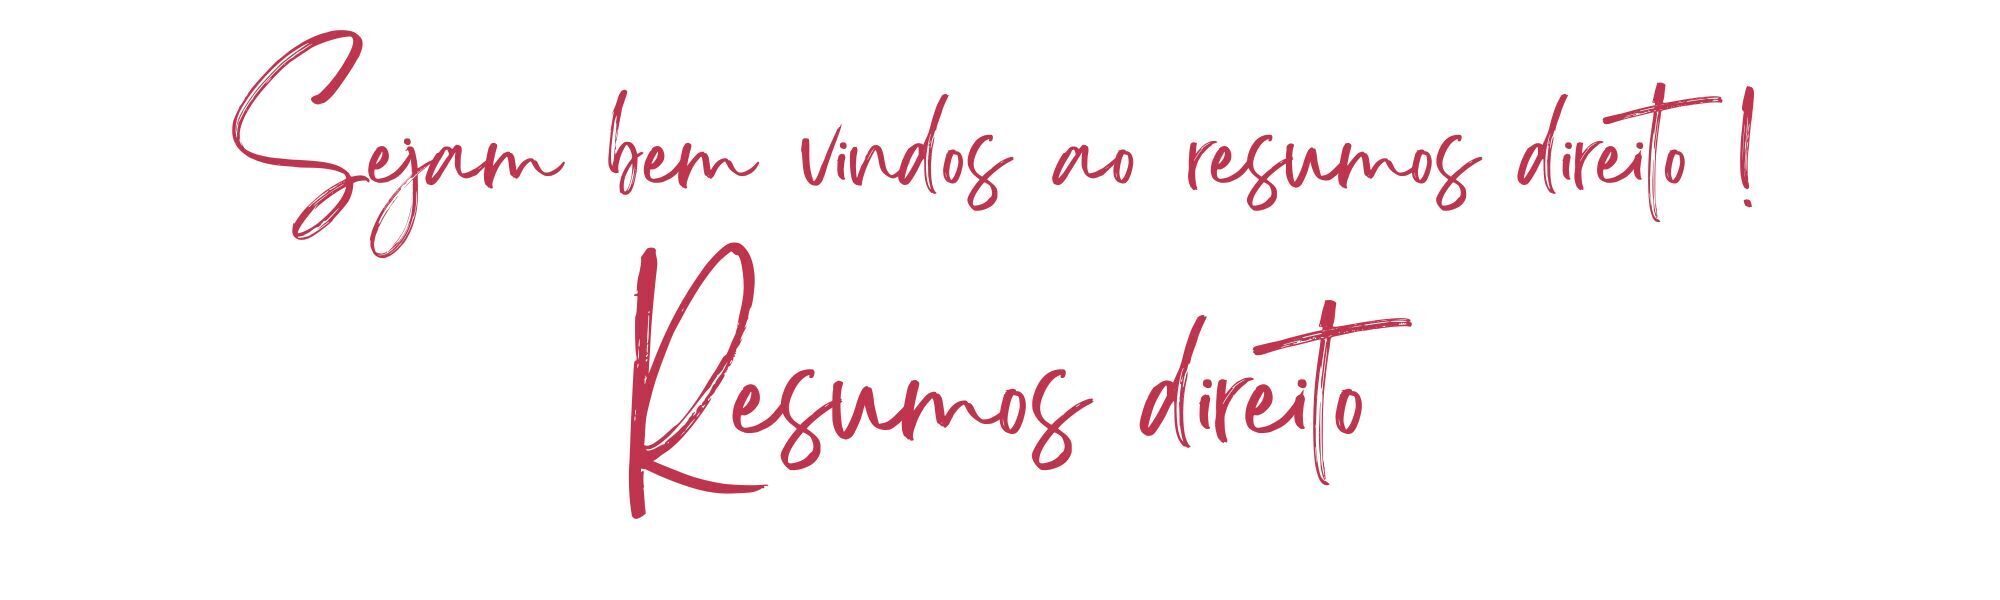 Sejam bem vindos ao resumos direito !
Resumos direito